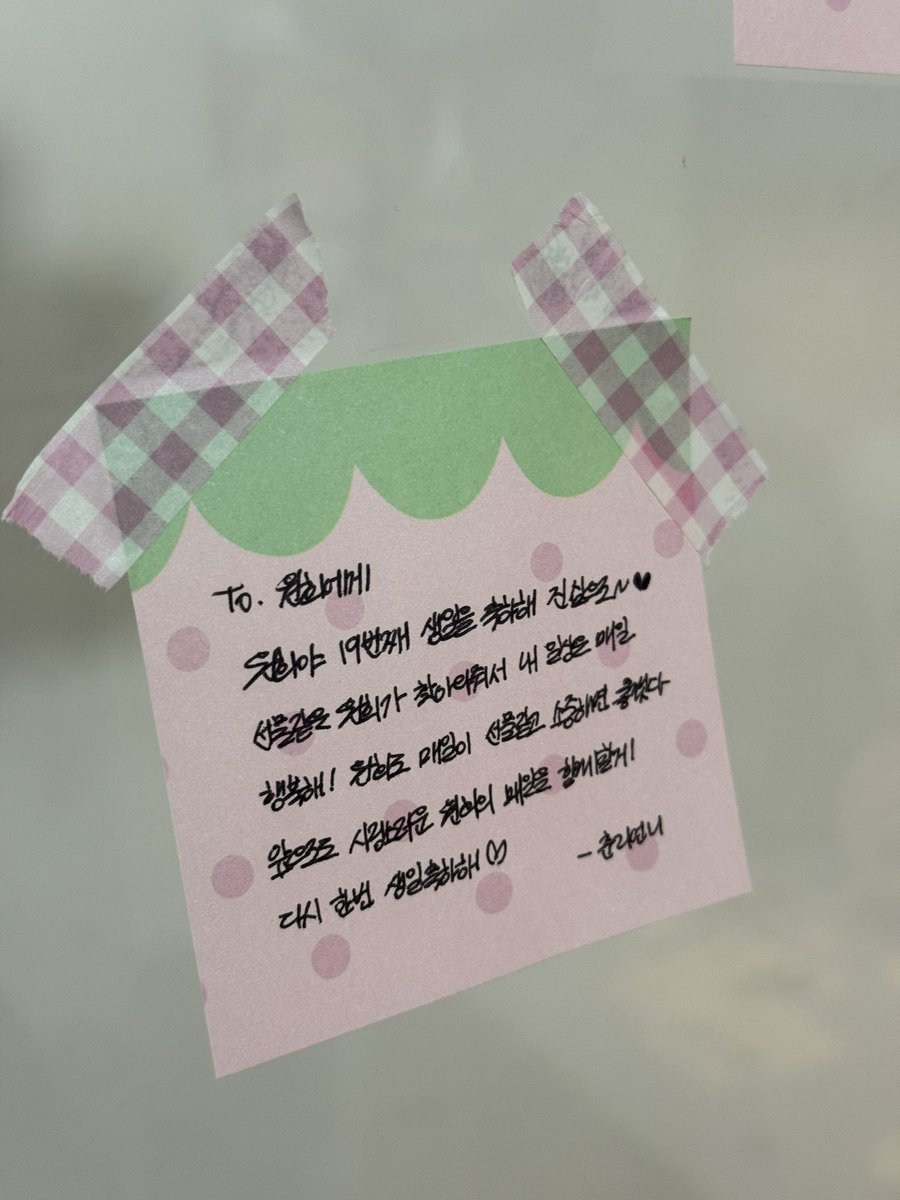 To. 원희에게
원희야 19번째 생일을 축하해 진심으로~♥
선물같은 원희가 찾아와줘서 내 일상은 매일
행복해! 원희도 매일이 선물같고 소중하면 좋겠다
앞으로도 사랑스러운 원희의 매일을 함께할게!
다시 한번 생일축하해♡ -윤라언니